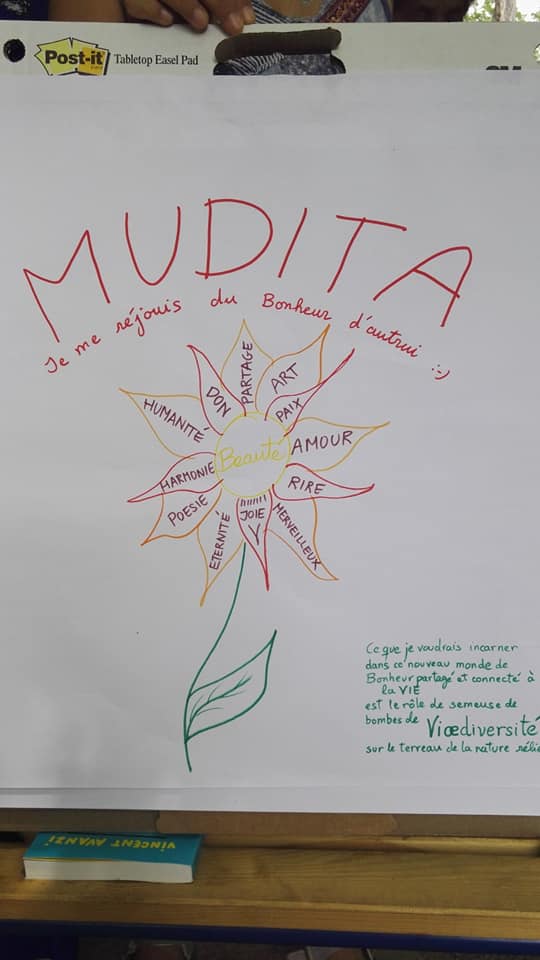 Post-it
Tabletop Easel Pad
MUDITA
Je me réjouis du Bonheur d'autrui :-)
PARTAGE
ART
PAIX
AMOUR
RIRE
MERVEILLEUX
JOIE
ETERNITÉ
POESIE
HARMONIE
HUMANITÉ
DON
Beauté
Ce que je voudrais incarner
dans ce nouveau monde de
Bonheur partagé et connecté à
la VIE
est le rôle de semeuse de
bombes de Viœdiversité
sur le terreau de la nature
VINCENT AVANZI